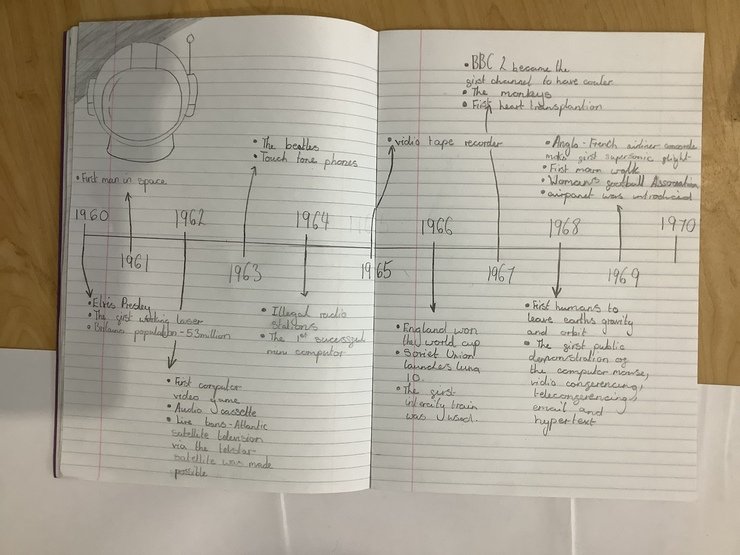 • First man in space
• The beatles
• Touch tone phones
1960
1961
1962
1963
1964
• Elvis Presley
• The girst working laser
• Britains population - 53 million
• First computor
video game
• Audio cassette
• Live trans-Atlantic
satellite television
via the telstar
satellite was made
possible
• Illegal radio
stations
• The 1st sucessful
mini computor
• BBC 2 became the
girst channel to have couler
• The monkeys
• First heart transplantion
• vidio tape recorder
• Anglo-French airliner concorde
make girst supersonic glight
• First moon walk
• Woman's gootball Association
• airpanet was introduced
1965
1966
1967
1968
1969
1970
• England won
the world cup
• Soviet Union
launches luna
10
• The girst
intercity train
was used.
• First humans to
leave earths gravity
and orbit
• The girst public
demonstration og
the computor mouse,
vidio conferencing,
teleconferencing,
email and
hypertext